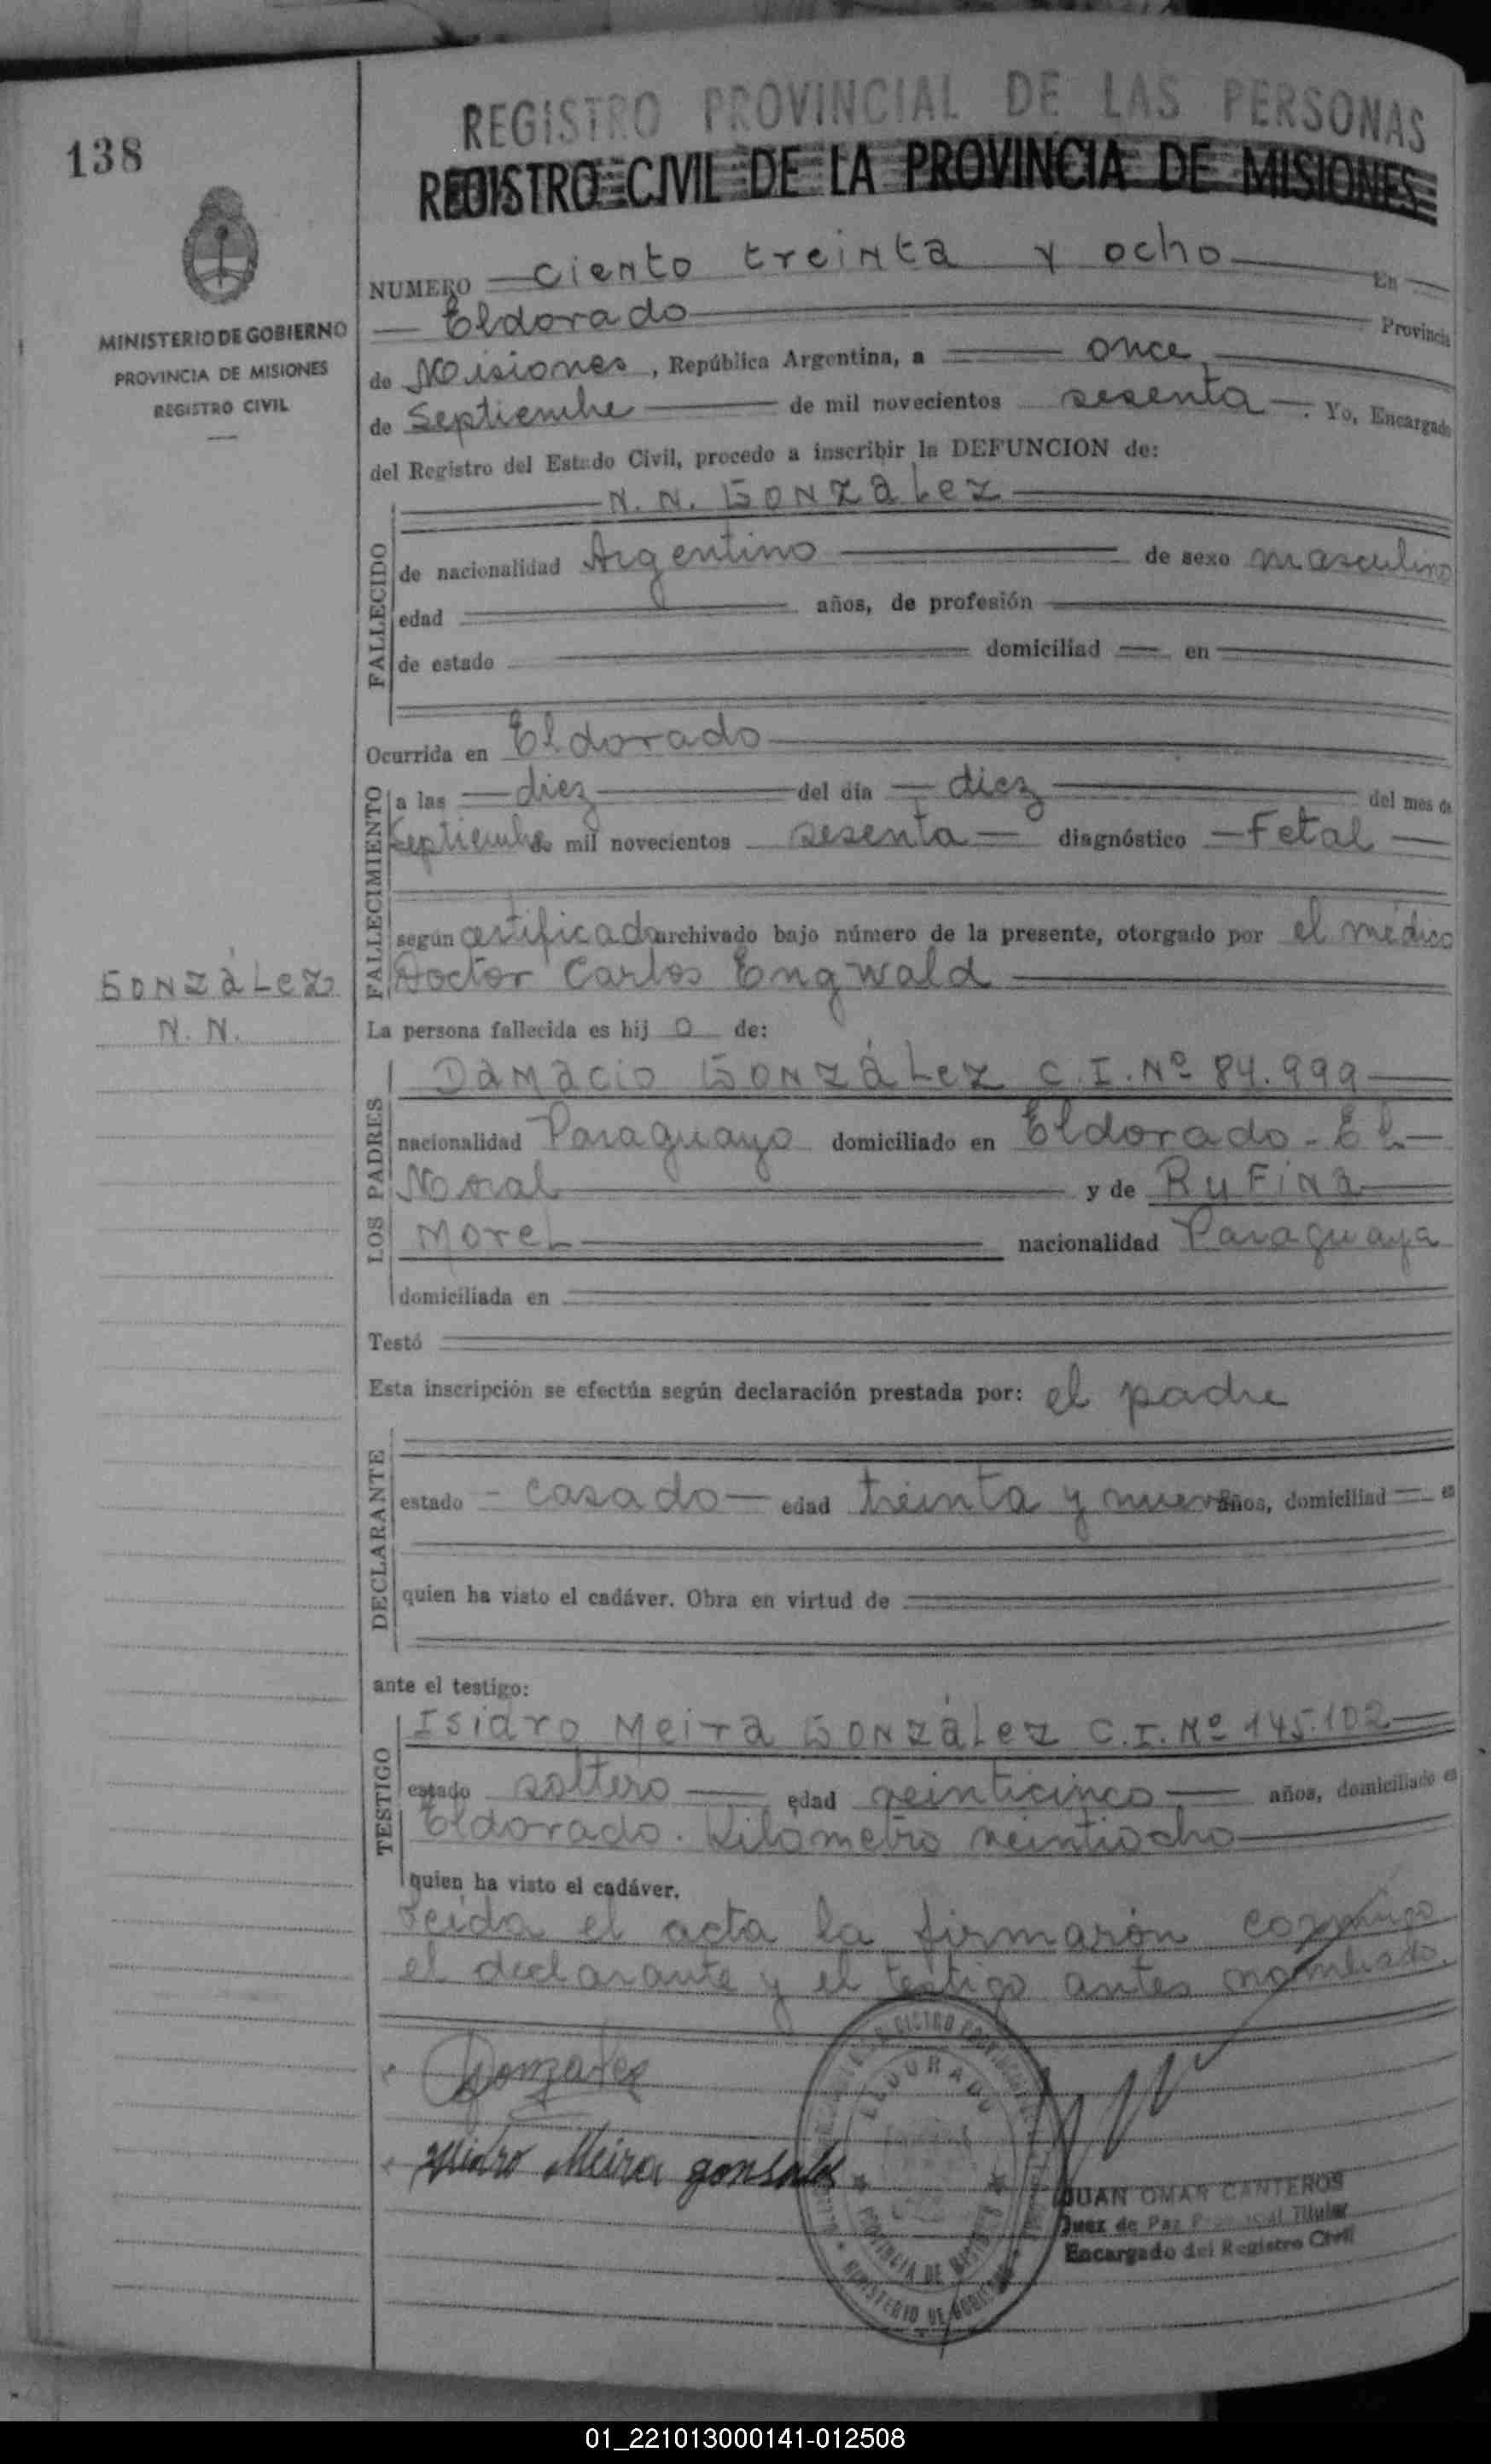 138
MINISTERIO DE GOBIERNO
PROVINCIA DE MISIONES
REGISTRO CIVIL
GONZÁLEZ
N. N.
REGISTRO PROVINCIAL DE LAS PERSONAS
REGISTRO CIVIL DE LA PROVINCIA DE MISIONES
NUMERO ciento treinta y ocho En
Eldorado Provincia
de Misiones, República Argentina, a once
de Septiembre de mil novecientos sesenta. Yo, Encargado
del Registro del Estado Civil, procedo a inscribir la DEFUNCION de:
N. N. GONZALEZ
FALLECIDO
de nacionalidad Argentino de sexo masculino
edad años, de profesión
de estado domiciliad en
Ocurrida en Eldorado
FALLECIMIENTO
a las diez del día diez del mes de
Septiembre mil novecientos sesenta diagnóstico Fetal
según certificado archivado bajo número de la presente, otorgado por el médico
Doctor Carlos Engwald
La persona fallecida es hij o de:
LOS PADRES
Damacio GONZÁLEZ C.I. Nº 84.999
nacionalidad Paraguayo domiciliado en Eldorado - El
Moral y de RUFINA
Morel nacionalidad Paraguaya
domiciliada en
Testó
Esta inscripción se efectúa según declaración prestada por: el padre
DECLARANTE
estado casado edad treinta y nueve años, domiciliad en
quien ha visto el cadáver. Obra en virtud de
ante el testigo:
TESTIGO
Isidro Meira GONZÁLEZ C.I. Nº 145.102
estado soltero edad veinticinco años, domiciliado en
Eldorado. Kilómetro veintiocho
quien ha visto el cadáver.
Leída el acta la firmarón conmigo
el declarante y el testigo antes nombrado.
Gonzalez
Ysidro Meira gonsales
REGISTRO PROVINCIAL
ELDORADO
PROVINCIA DE MISIONES
MINISTERIO DE GOBIERNO
JUAN OMAR CANTEROS
Juez de Paz Provincial Titular
Encargado del Registro Civil
01_221013000141-012508